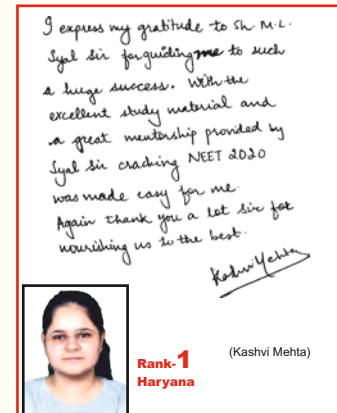 I express my gratitude to Sh. M.L.
Syal Sir for guiding me to such
a huge success. With the
excellent study material and
a great mentorship provided by
Syal Sir cracking NEET 2020
was made easy for me.
Again thank you a lot Sir for
nourishing us to the best.
Kashvi Mehta
(Kashvi Mehta)
Rank-1
Haryana